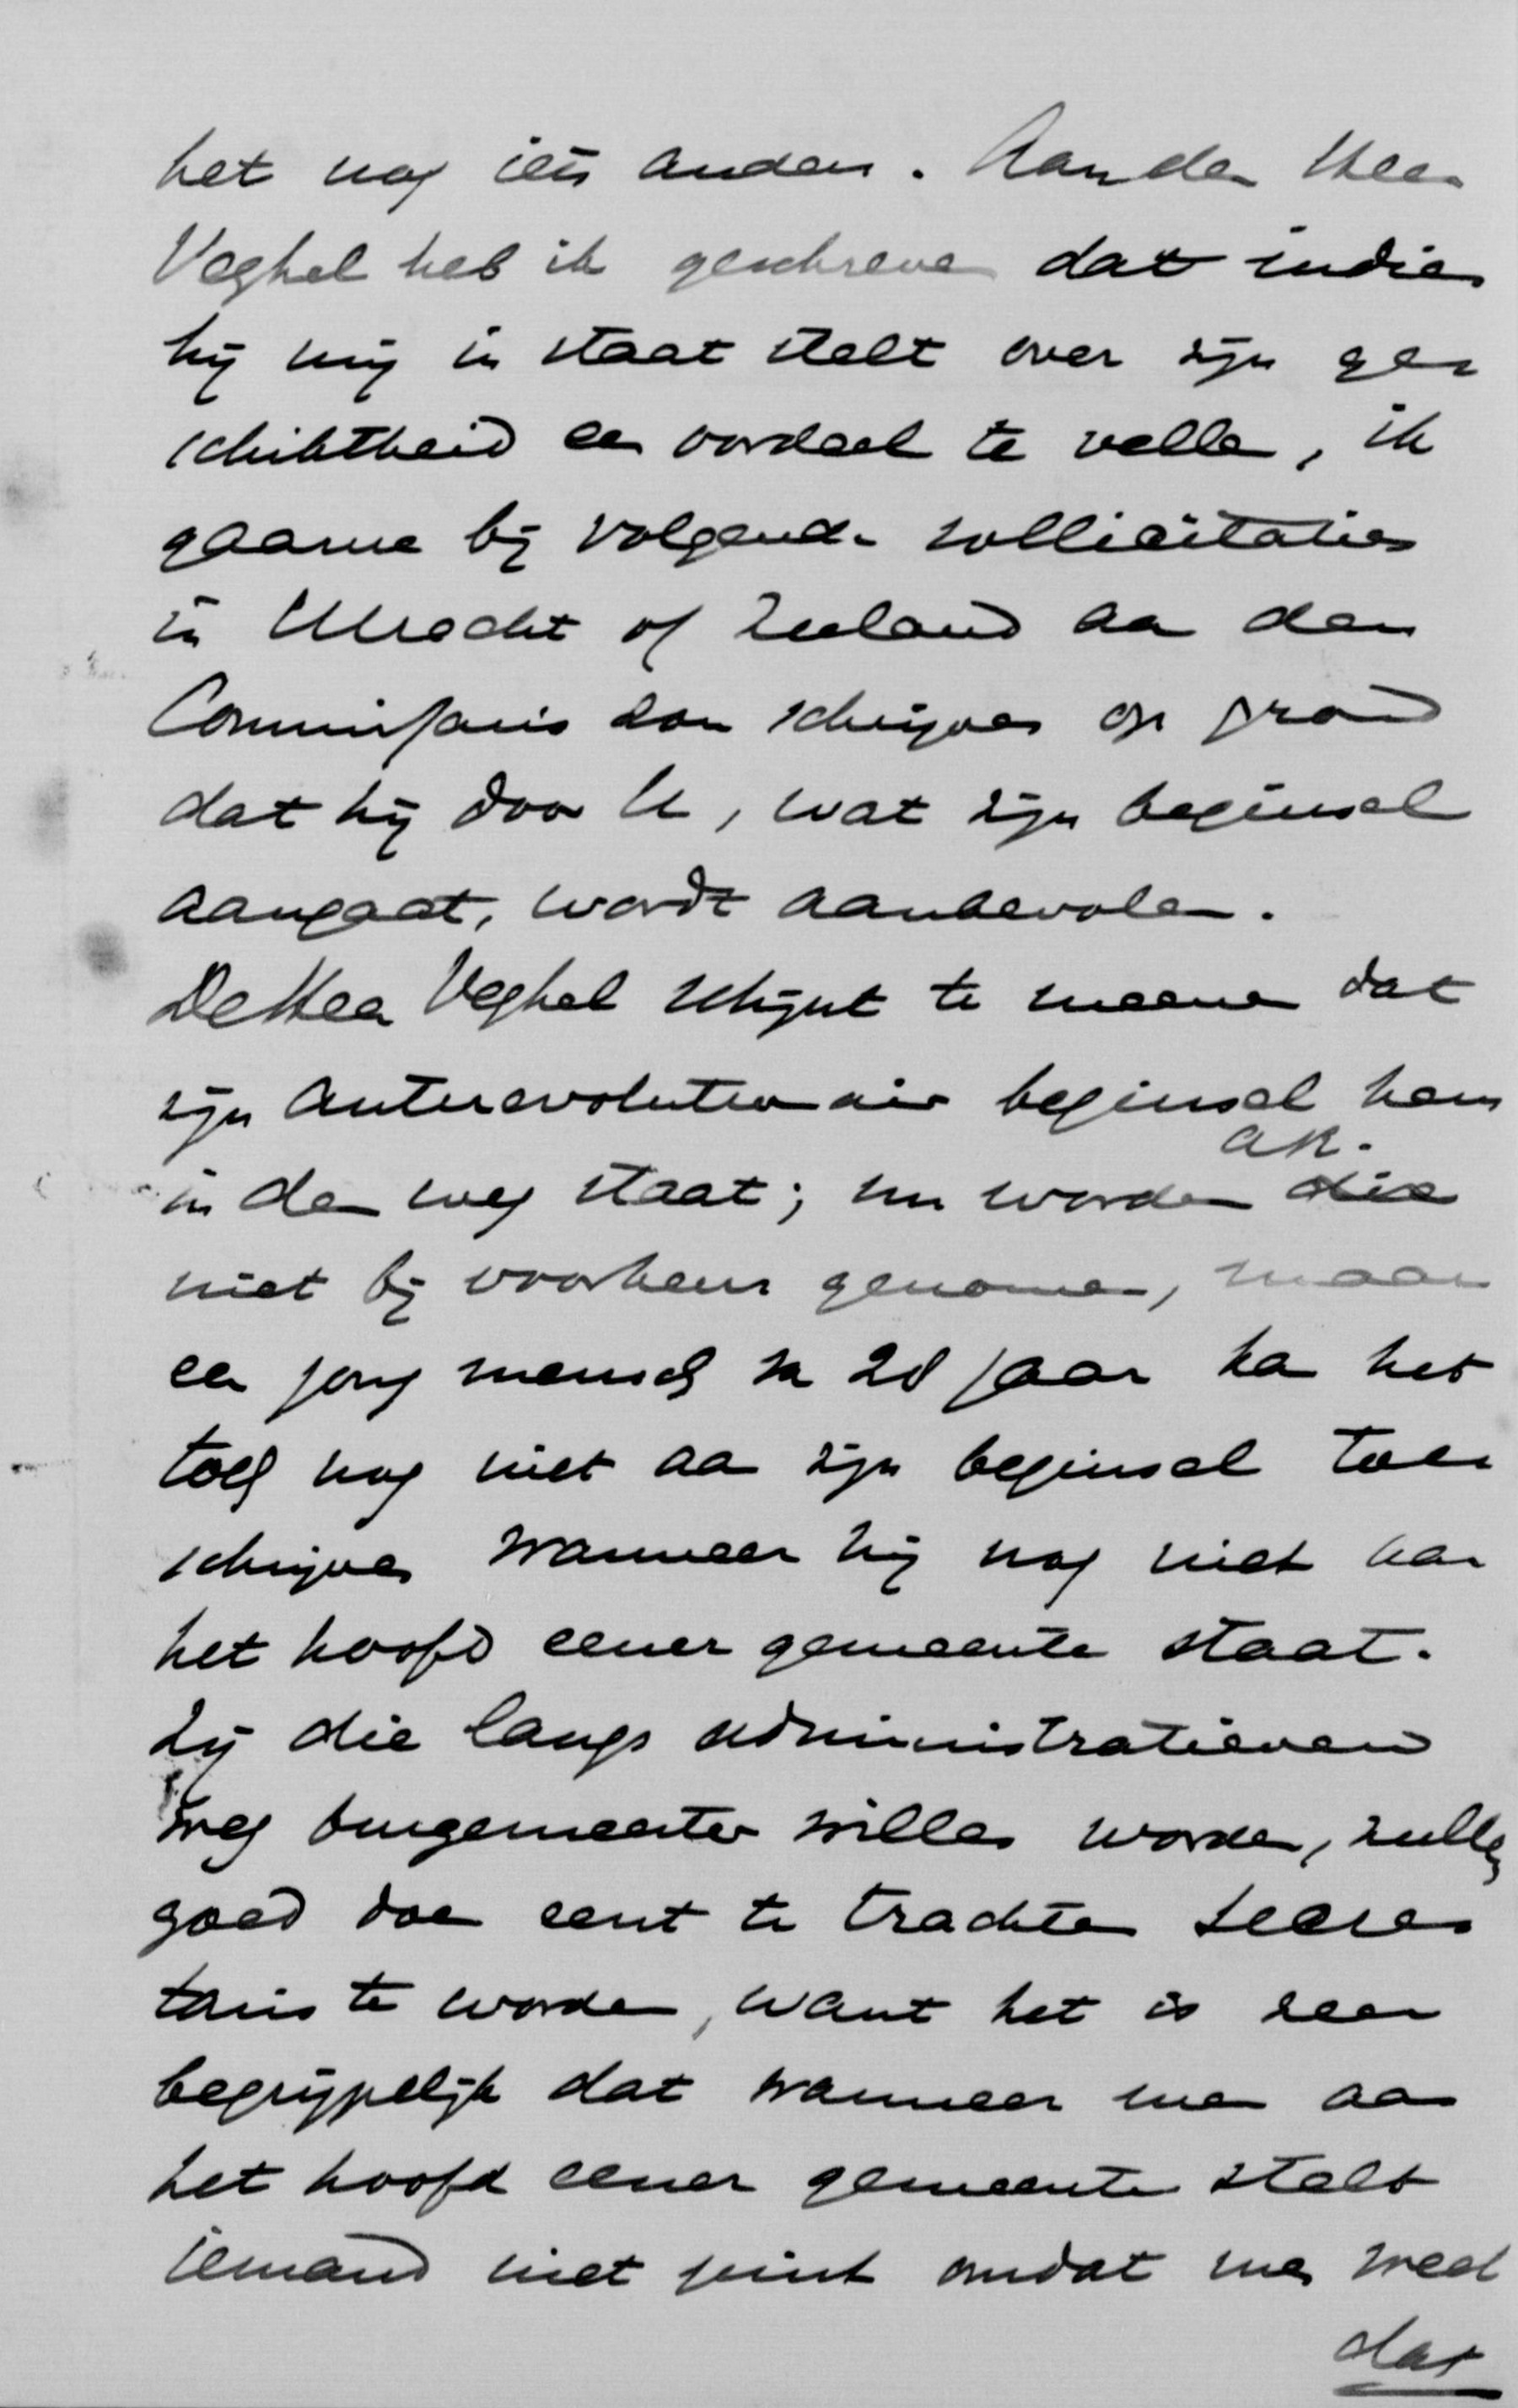 het nog iets anders. Aan den Heer
Veghel heb ik geschreven dat indien
hij mij in staat stelt over zijn ge-
schiktheid een oordeel te vellen, ik
gaarne bij volgende sollicitaties
in Utrecht of Zeeland aan den
Commissaris zou schrijven op grond
dat hij door U, wat zijn beginsel
aangaat, wordt aanbevolen.
De Heer Veghel schijnt te meenen dat
zijn antirevolutionair beginsel hem
a.r.
in den weg staat; nu worden die
niet bij voorkeur genomen, maar
een jong mensch van 28 jaar kan het
toch nog niet aan zijn beginsel toe-
schrijven wanneer hij nog niet aan
het hoofd eener gemeente staat.
Zij die langs administratieven
weg burgemeester willen worden, zullen
goed doen eerst te trachten secre-
taris te worden, want het is zeer
begrijpelijk dat wanneer men aan
het hoofd eener gemeente stelt
iemand niet juist omdat men weet
dat